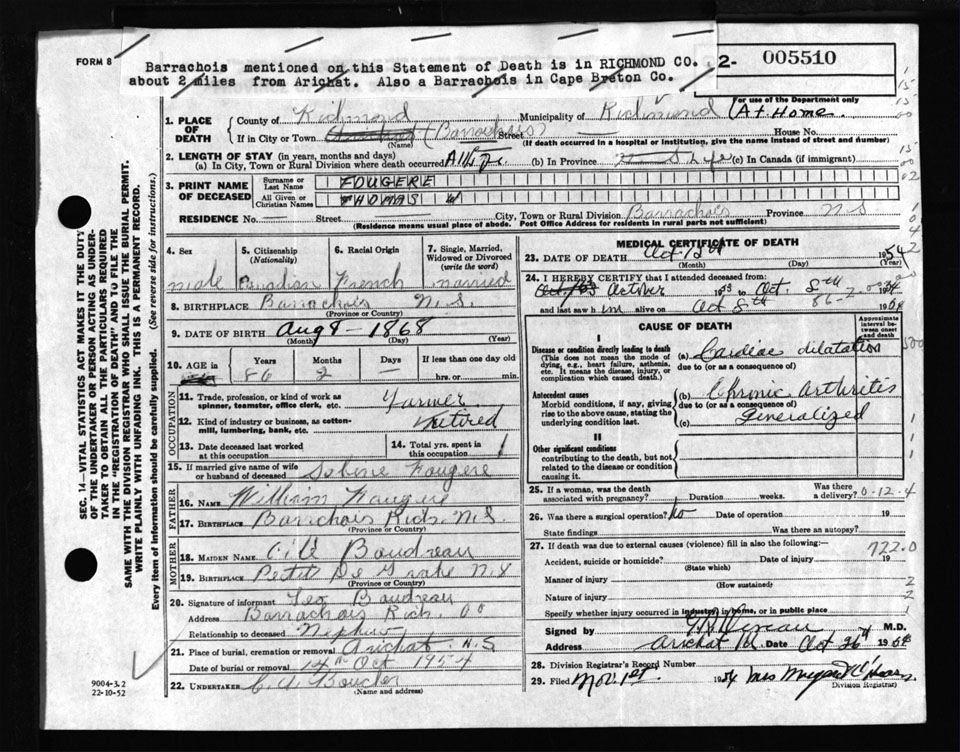 FORM 8
Barrachois mentioned on this Statement of Death is in RICHMOND CO.
about 2 miles from Arichat. Also a Barrachois in Cape Breton Co.
2- 005510
For use of the Department only
1. PLACE OF DEATH
County of Richmond Municipality of Richmond (At Home.
If in City or Town (Barrachois) Street House No.
(Name) (If death occurred in a hospital or institution, give the name instead of street and number)
2. LENGTH OF STAY (in years, months and days)
(a) In City, Town or Rural Division where death occurred All Life (b) In Province Life (c) in Canada (if immigrant)
3. PRINT NAME OF DECEASED
Surname or Last Name FOUGERE
All Given or Christian Names THOMAS W
RESIDENCE No. Street City, Town or Rural Division Barrachois Province N S
(Residence means usual place of abode. Post Office Address for residents in rural parts not sufficient)
4. Sex male
5. Citizenship (Nationality) Canadian
6. Racial Origin French
7. Single, Married, Widowed or Divorced (write the word) married
8. BIRTHPLACE Barrachois N.S.
(Province or Country)
9. DATE OF BIRTH Aug 8 - 1868
(Month) (Day) (Year)
10. AGE in Years Months Days If less than one day old
86 2 hrs. or min.
OCCUPATION
11. Trade, profession, or kind of work as spinner, teamster, office clerk, etc. Farmer
12. Kind of industry or business, as cotton-mill, lumbering, bank, etc. Retired
13. Date deceased last worked at this occupation
14. Total yrs. spent in this occupation
15. If married give name of wife or husband of deceased Sabine Fougere
FATHER
16. NAME William Fougere
17. BIRTHPLACE Barrachois Rich. N.S.
(Province or Country)
MOTHER
18. MAIDEN NAME Boudreau
19. BIRTHPLACE Petit De Grat N S
(Province or Country)
20. Signature of informant Leo Boudreau
Address Barrachois Rich. Co
Relationship to deceased Nephew
21. Place of burial, cremation or removal Arichat N.S
Date of burial or removal 14th Oct 1954
22. UNDERTAKER C. A. Boucher
(Name and address)
MEDICAL CERTIFICATE OF DEATH
23. DATE OF DEATH Oct 12th 1954
(Month) (Day) (Year)
24. I HEREBY CERTIFY that I attended deceased from:
October 1953 to Oct 8th 1954
and last saw him alive on Oct 8th 1954
86-2-0
CAUSE OF DEATH
Approximate interval between onset and death
I
Disease or condition directly leading to death
(This does not mean the mode of dying, e.g., heart failure, asthenia, etc. It means the disease, injury, or complication which caused death.)
(a) Cardiac dilatation
due to (or as a consequence of)
Antecedent causes
Morbid conditions, if any, giving rise to the above cause, stating the underlying condition last.
(b) Chronic Arthritis
due to (or as a consequence of)
(c) Generalized
II
Other significant conditions
contributing to the death, but not related to the disease or condition causing it.
25. If a woman, was the death associated with pregnancy? Duration weeks. Was there a delivery?
0-12-4
26. Was there a surgical operation? No Date of operation 19
State findings Was there an autopsy?
27. If death was due to external causes (violence) fill in also the following:—
722.0
Accident, suicide or homicide? Date of injury 19
(State which)
Manner of injury
(How sustained)
Nature of injury
Specify whether injury occurred in industry, in home, or in public place
Signed by M.D.
Address Arichat Date Oct 26th 1954
28. Division Registrar's Record Number
29. Filed Nov. 1st. 1954 Mrs
Division Registrar)
SEC. 14—VITAL STATISTICS ACT MAKES IT THE DUTY
OF THE UNDERTAKER OR PERSON ACTING AS UNDER-
TAKER TO OBTAIN ALL THE PARTICULARS REQUIRED
IN THE "REGISTRATION OF DEATH" AND TO FILE THE
SAME WITH THE DIVISION REGISTRAR WHO SHALL ISSUE THE BURIAL PERMIT.
WRITE PLAINLY WITH UNFADING INK. THIS IS A PERMANENT RECORD.
Every item of information should be carefully supplied. (See reverse side for instructions.)
9004-3.2
22-10-52